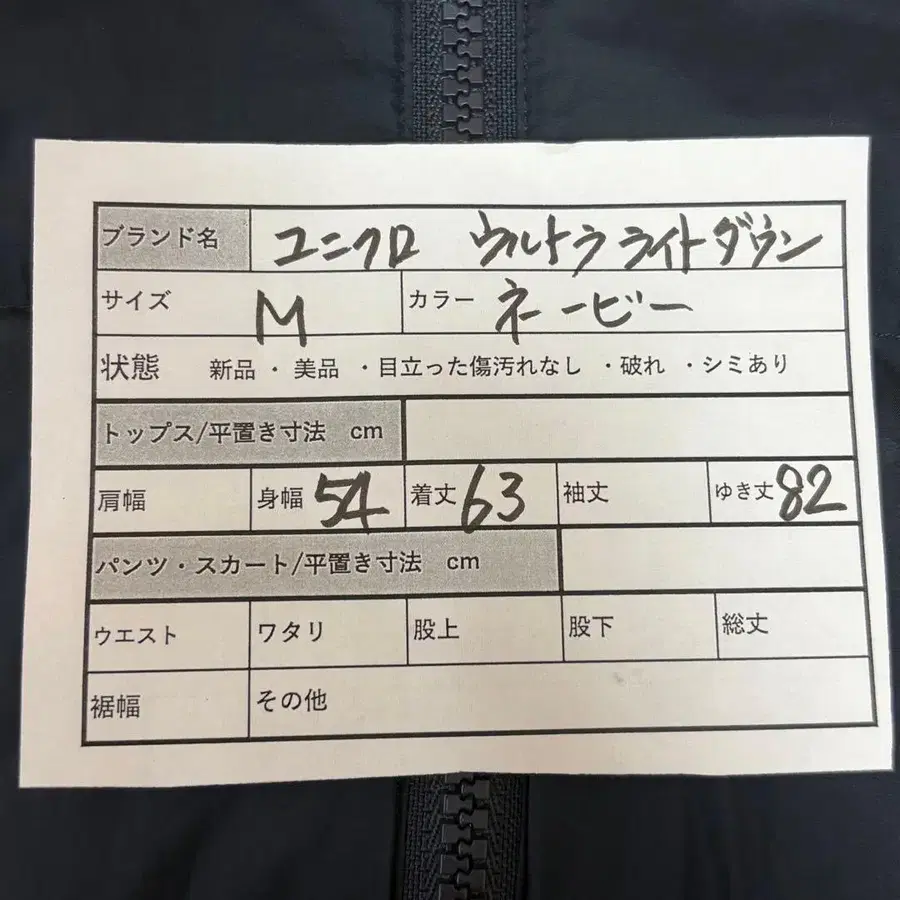 ブランド名 ユニクロ ウルトラライトダウン
サイズ M カラー ネービー
状態 新品・美品・目立った傷汚れなし・破れ・シミあり
トップス/平置き寸法 cm
肩幅 身幅 54 着丈 63 袖丈 ゆき丈 82
パンツ・スカート/平置き寸法 cm
ウエスト ワタリ 股上 股下 総丈
裾幅 その他